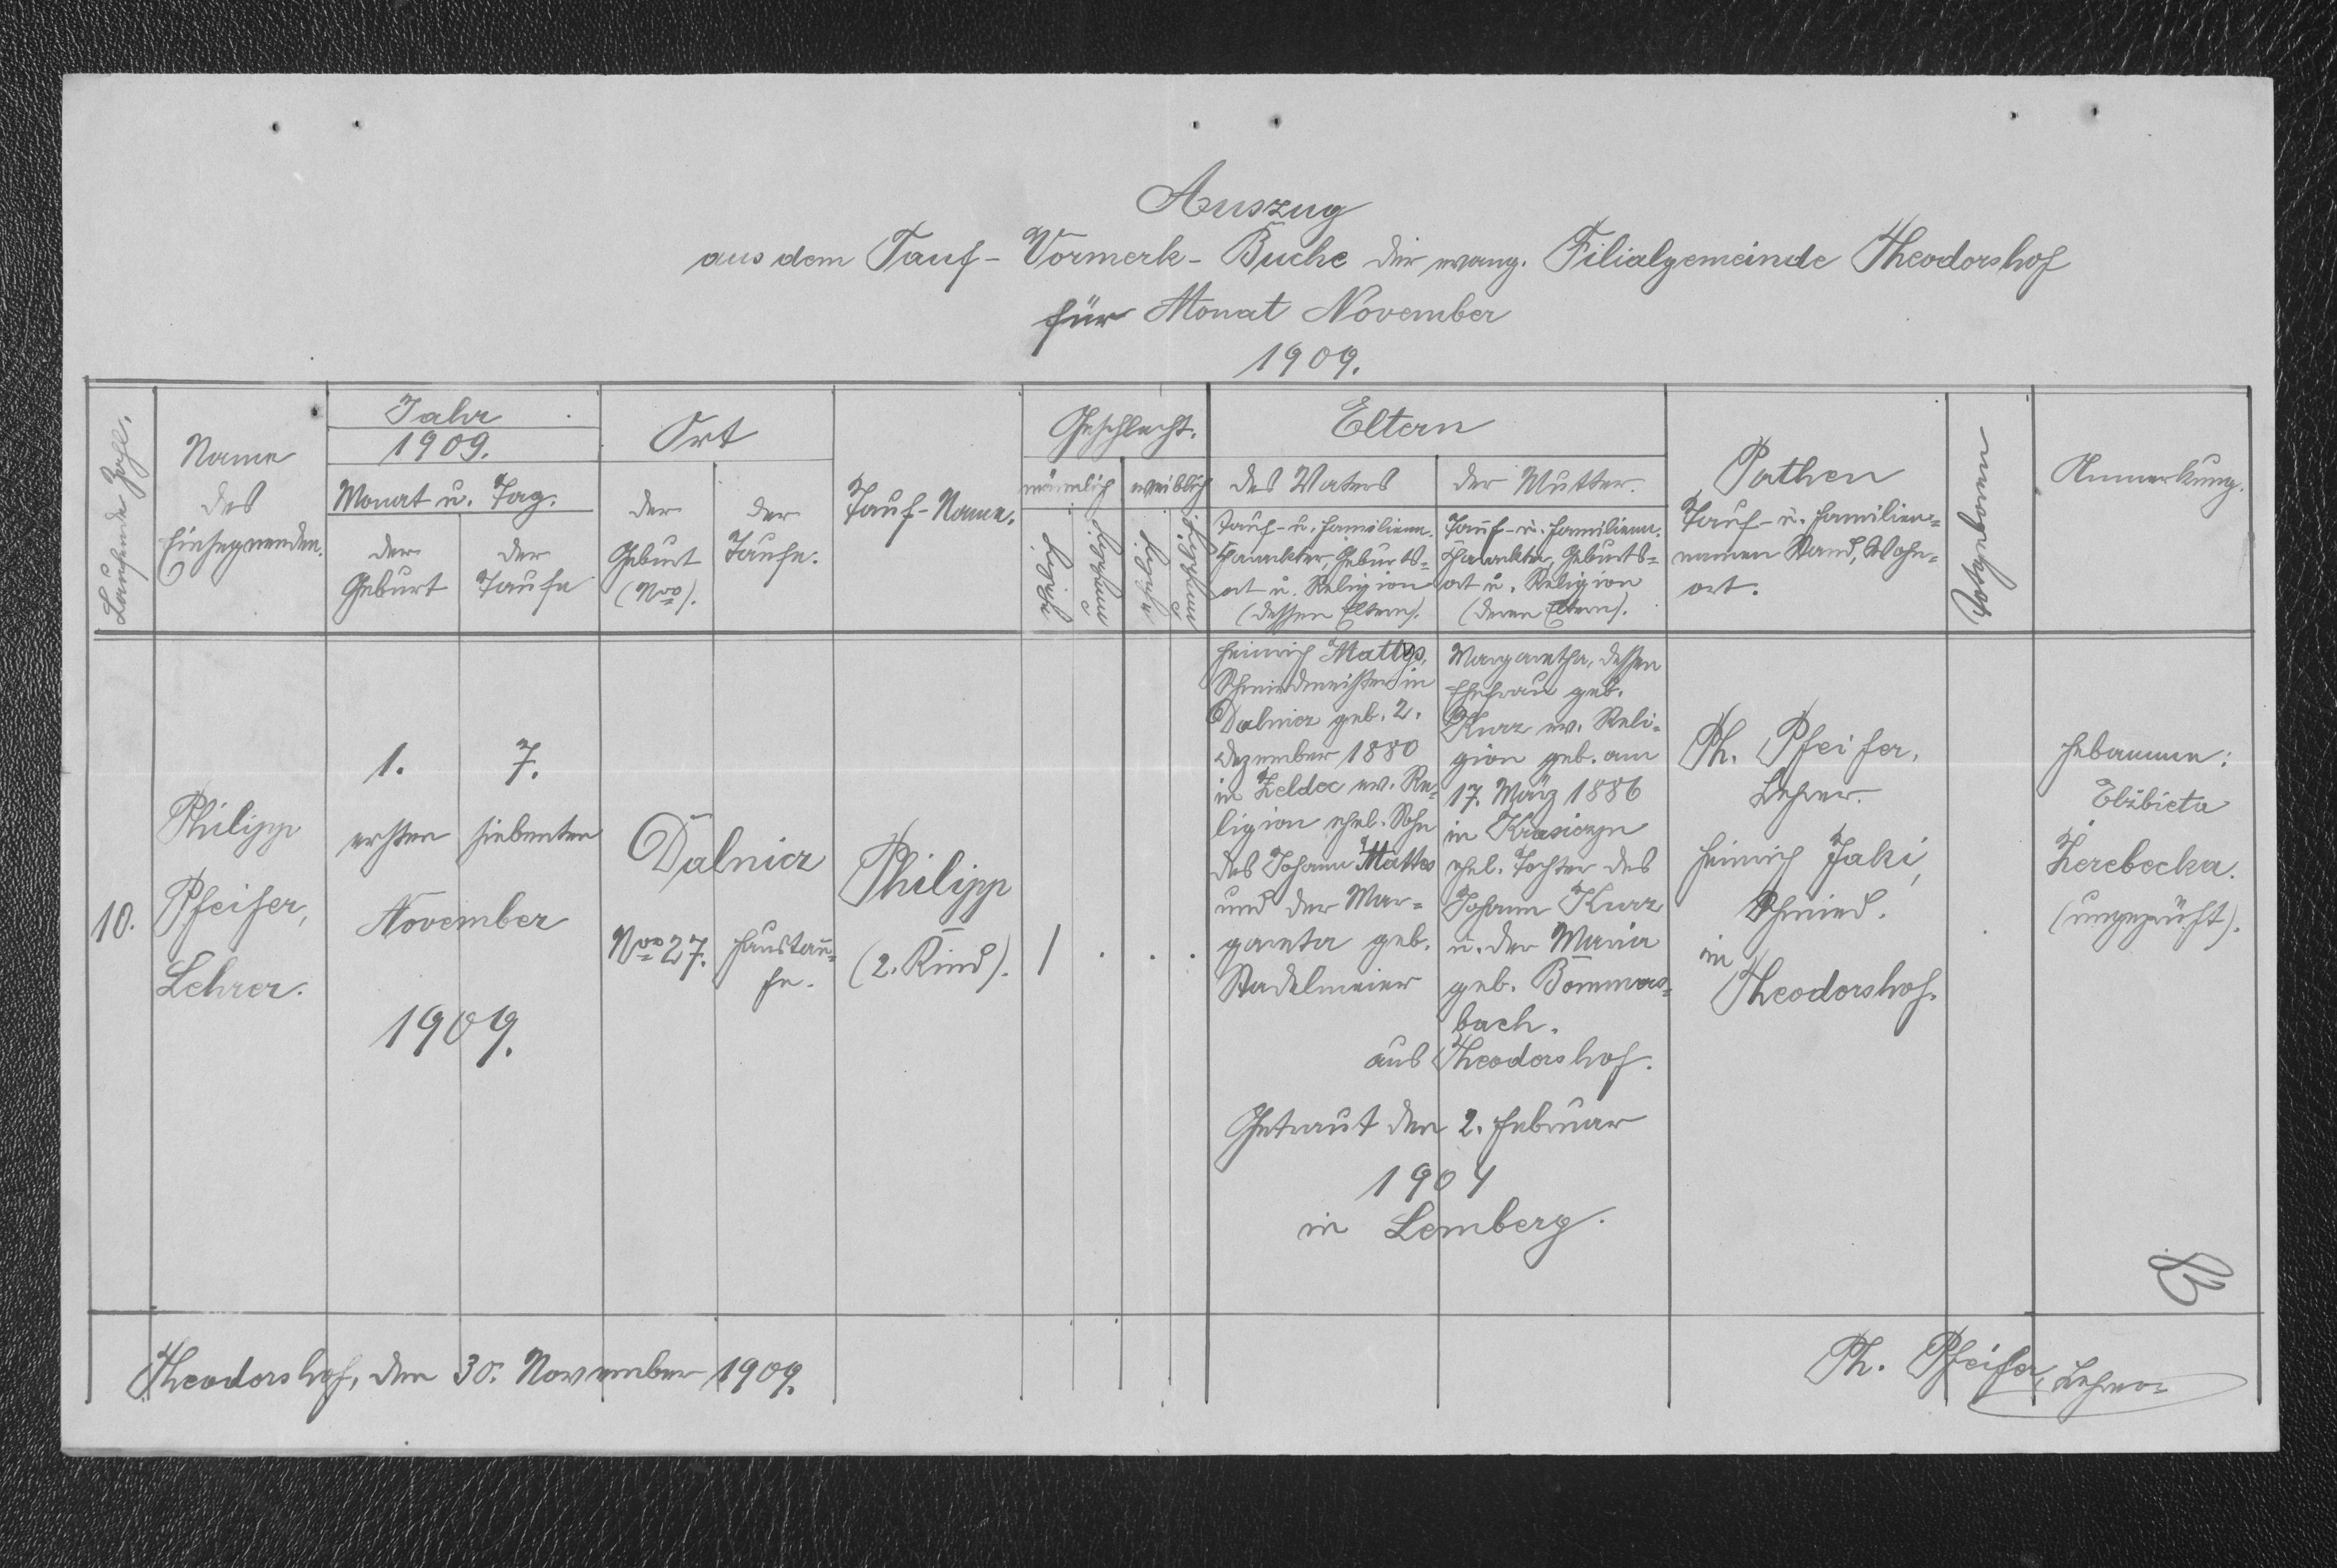 Auszug
aus dem Tauf-Vormerk-Buche der evang. Filialgemeinde Theodorshof
für Monat November
1909.
Laufende Zahl.
Name
des
Einsegnenden.
Jahr
1909.
Monat u. Tag.
der
Geburt
der
Taufe
Ort
der
Geburt
(Nro).
der
Taufe.
Tauf-Name.
Geschlecht.
männlich
weiblich
ehelich
unehelich
ehelich
unehelich
Eltern
des Vaters
Tauf- u. Familienn.
Charakter, Geburts-
ort u. Religion
(dessen Eltern).
der Mutter.
Tauf- u. Familienn.
Charakter, Geburts-
ort u. Religion
(deren Eltern).
Pathen
Tauf- u. Familien-
namen Stand, Wohn-
ort.
Totgeboren
Anmerkung.
10.
Philipp
Pfeifer,
Lehrer.
1.
7.
ersten
siebenten
November
1909.
Dalnicz
Nro 27.
Haustau-
fe.
Philipp
(2. Kind).
1 . . .
Heinrich Mattes,
Schmiedmeister in
Dalnicz geb. 2.
Dezember 1880
in Zeldec ev. Re-
ligion ehel. Sohn
des Johann Mattes
und der Mar-
gareta geb.
Stadelmeier
Margaretha, dessen
Ehefrau geb.
Kurz ev. Reli-
gion geb. am
17. März 1886
in Krasiczyn
ehel. Tochter des
Johann Kurz
u. der Maria
geb. Bommers-
bach.
aus Theodorshof.
Getraut den 2. Februar
1904
in Lemberg.
Ph. Pfeifer,
Lehrer.
Heinrich Jaki,
Schmied.
in
Theodorshof.
.
Hebamme:
Elżbieta
Żerebecka.
(ungeprüft).
Theodorshof, den 30. November 1909.
Ph. Pfeifer, Lehrer